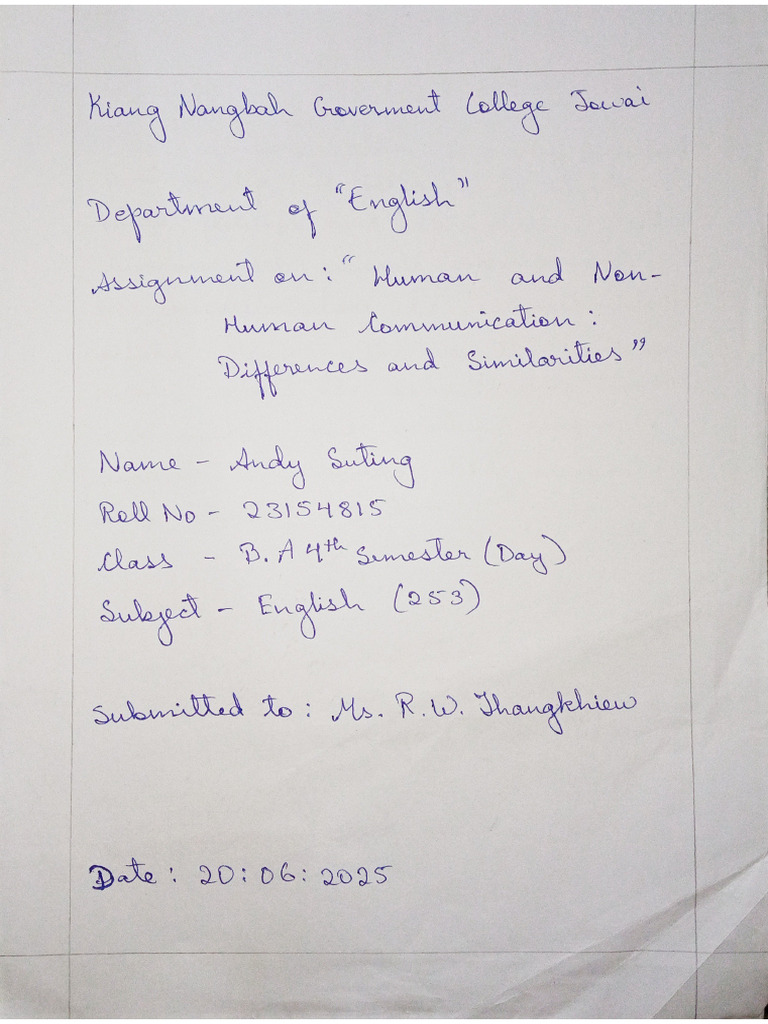 Kiang Nangbah Goverment College Jowai
Department of "English"
Assignment on: "Human and Non-
Human Communication:
Differences and Similarities"
Name - Andy Suting
Roll No - 23154815
Class - B.A 4th Semester (Day)
Subject - English (253)
Submitted to: Ms. R.W. Thangkhiew
Date: 20:06:2025